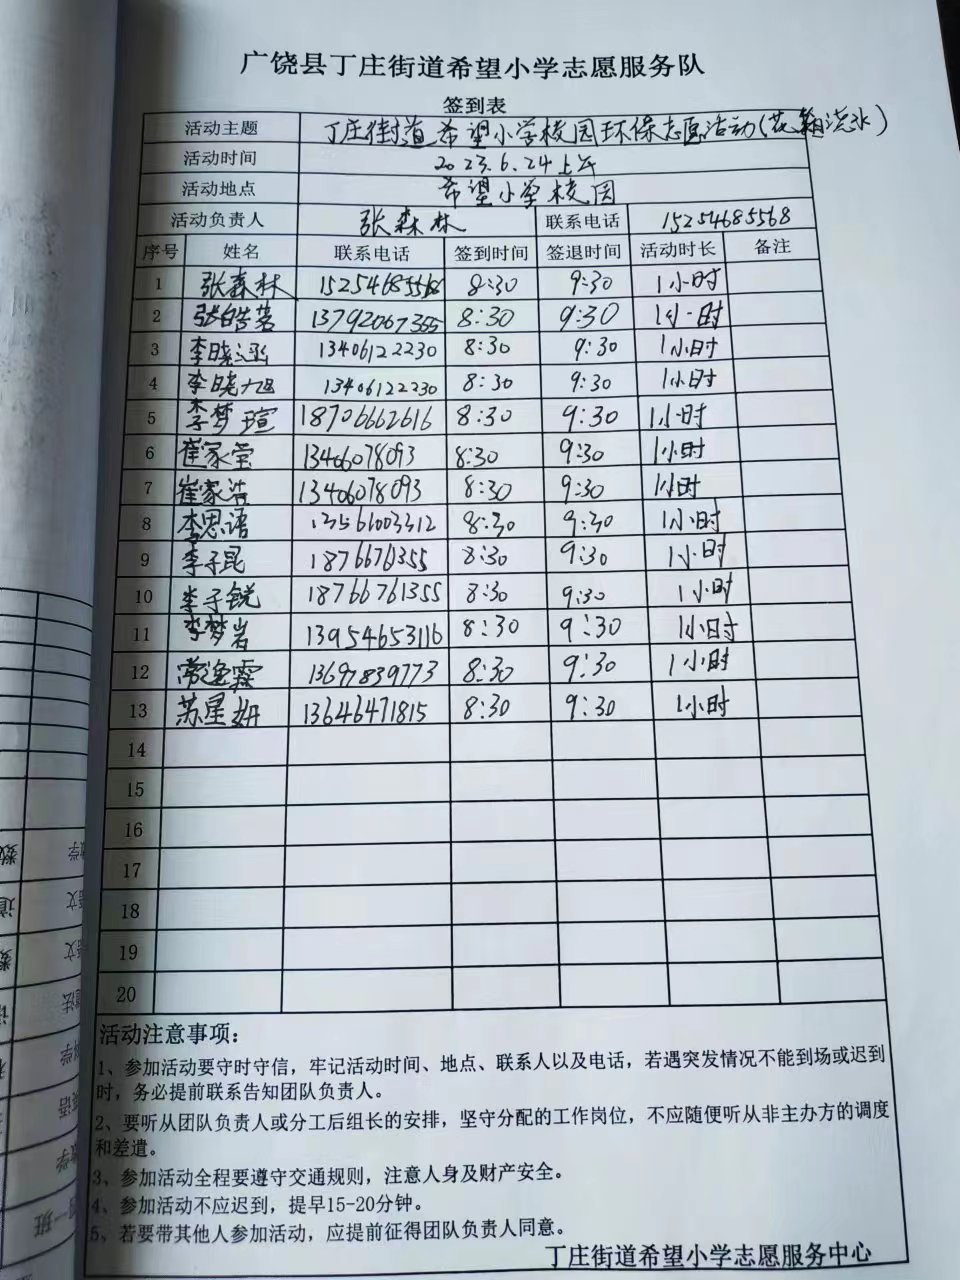 广饶县丁庄街道希望小学志愿服务队
签到表
活动主题 丁庄街道希望小学校园环保志愿活动(花期浇水)
活动时间 2023.6.24上午
活动地点 希望小学校园
活动负责人 张森林 联系电话 15254685568
序号 姓名 联系电话 签到时间 签退时间 活动时长 备注
1 张森林 15254685568 8:30 9:30 1小时
2 张皓茗 13792067355 8:30 9:30 1小时
3 李晓涵 13406122230 8:30 9:30 1小时
4 李晓旭 13406122230 8:30 9:30 1小时
5 李梦瑄 18706662616 8:30 9:30 1小时
6 崔家莹 13406078093 8:30 9:30 1小时
7 崔家浩 13406078093 8:30 9:30 1小时
8 李思语 13561003312 8:30 9:30 1小时
9 李子昆 1876676355 8:30 9:30 1小时
10 李子锐 18766761355 8:30 9:30 1小时
11 李梦岩 13954653116 8:30 9:30 1小时
12 常逸霖 13697839773 8:30 9:30 1小时
13 苏星妍 13646471815 8:30 9:30 1小时
14
15
16
17
18
19
20
活动注意事项：
1、参加活动要守时守信，牢记活动时间、地点、联系人以及电话，若遇突发情况不能到场或迟到
时，务必提前联系告知团队负责人。
2、要听从团队负责人或分工后组长的安排，坚守分配的工作岗位，不应随便听从非主办方的调度
和差遣。
3、参加活动全程要遵守交通规则，注意人身及财产安全。
4、参加活动不应迟到，提早15-20分钟。
5、若要带其他人参加活动，应提前征得团队负责人同意。
丁庄街道希望小学志愿服务中心